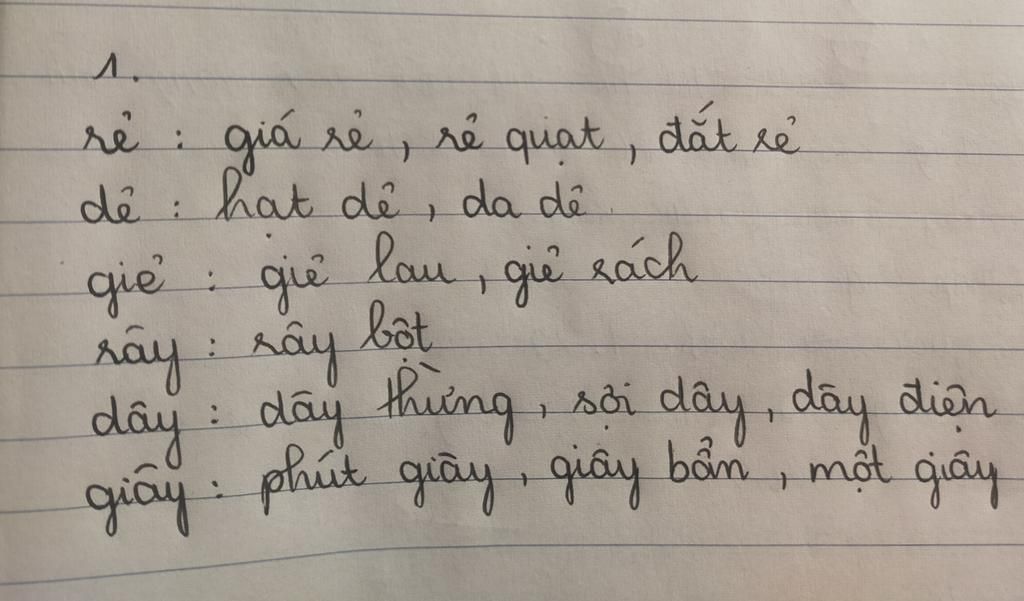 1.
rẻ : giá rẻ, rẻ quạt, đắt rẻ
dẻ : hạt dẻ, da dẻ
giẻ : giẻ lau, giẻ rách
rây : rây bột
dây : dây thừng, sợi dây, dây điện
giây : phút giây, giây bẩn, một giây